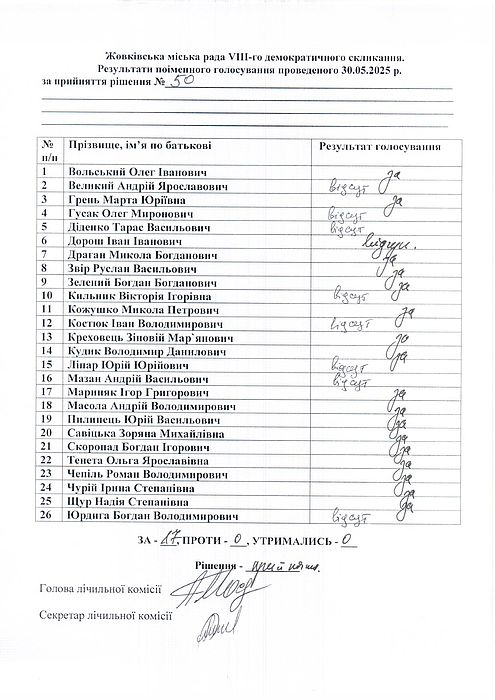 Жовківська міська рада VIII-го демократичного скликання.
Результати поіменного голосування проведеного 30.05.2025 р.
за прийняття рішення № 50
№ п/п Прізвище, ім’я по батькові Результат голосування
1 Вольський Олег Іванович за
2 Великий Андрій Ярославович відсут
3 Грень Марта Юріївна за
4 Гусак Олег Миронович відсут
5 Діденко Тарас Васильович відсут
6 Дорош Іван Іванович
7 Драган Микола Богданович за
8 Звір Руслан Васильович за
9 Зелений Богдан Богданович за
10 Кильник Вікторія Ігорівна відсут
11 Кожушко Микола Петрович за
12 Костюк Іван Володимирович відсут
13 Креховець Зіновій Мар`янович за
14 Кудик Володимир Данилович за
15 Лінар Юрій Юрійович відсут
16 Мазан Андрій Васильович відсут
17 Мариняк Ігор Григорович за
18 Масола Андрій Володимирович за
19 Пилипець Юрій Васильович за
20 Савіцька Зоряна Михайлівна за
21 Скоропад Богдан Ігорович за
22 Тенета Ольга Ярославівна за
23 Чепіль Роман Володимирович за
24 Чурій Ірина Степанівна за
25 Щур Надія Степанівна за
26 Юрдига Богдан Володимирович відсут
ЗА - 17, ПРОТИ - 0, УТРИМАЛИСЬ - 0
Рішення - прийняте.
Голова лічильної комісії
Секретар лічильної комісії